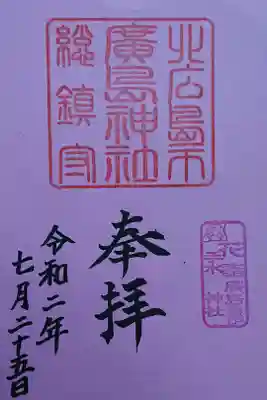 北広島市
廣島神社
総鎮守
奉拝
令和二年
七月二十五日
神社